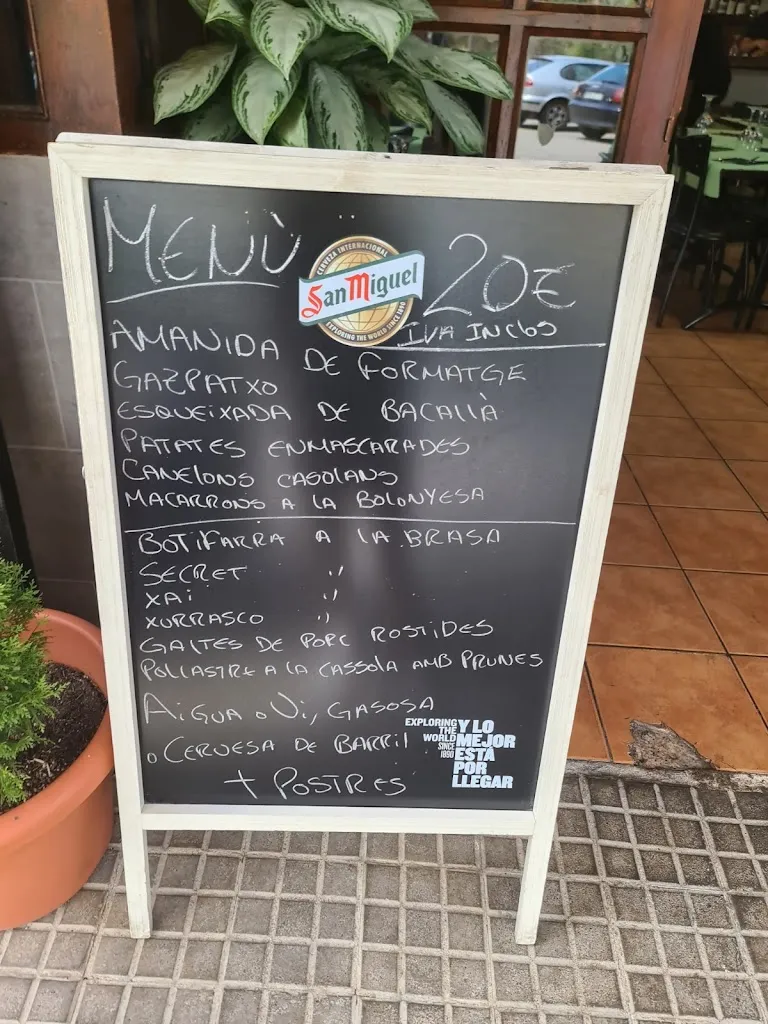 MENÙ
CERVEZA INTERNACIONAL
San Miguel
EXPLORING THE WORLD SINCE 1890
20€
IVA INCLOS
AMANIDA DE FORMATGE
GAZPATXO
ESQUEIXADA DE BACALLÀ
PATATES ENMASCARADES
CANELONS CASOLANS
MACARRONS A LA BOLONYESA
BOTIFARRA A LA BRASA
SECRET "
XAI "
XURRASCO "
GALTES DE PORC ROSTIDES
POLLASTRE A LA CASSOLA AMB PRUNES
AIGUA O VI, GASOSA
O CERVESA DE BARRIL
+ POSTRES
EXPLORING
THE
WORLD
SINCE
1890
Y LO
MEJOR
ESTÁ
POR
LLEGAR